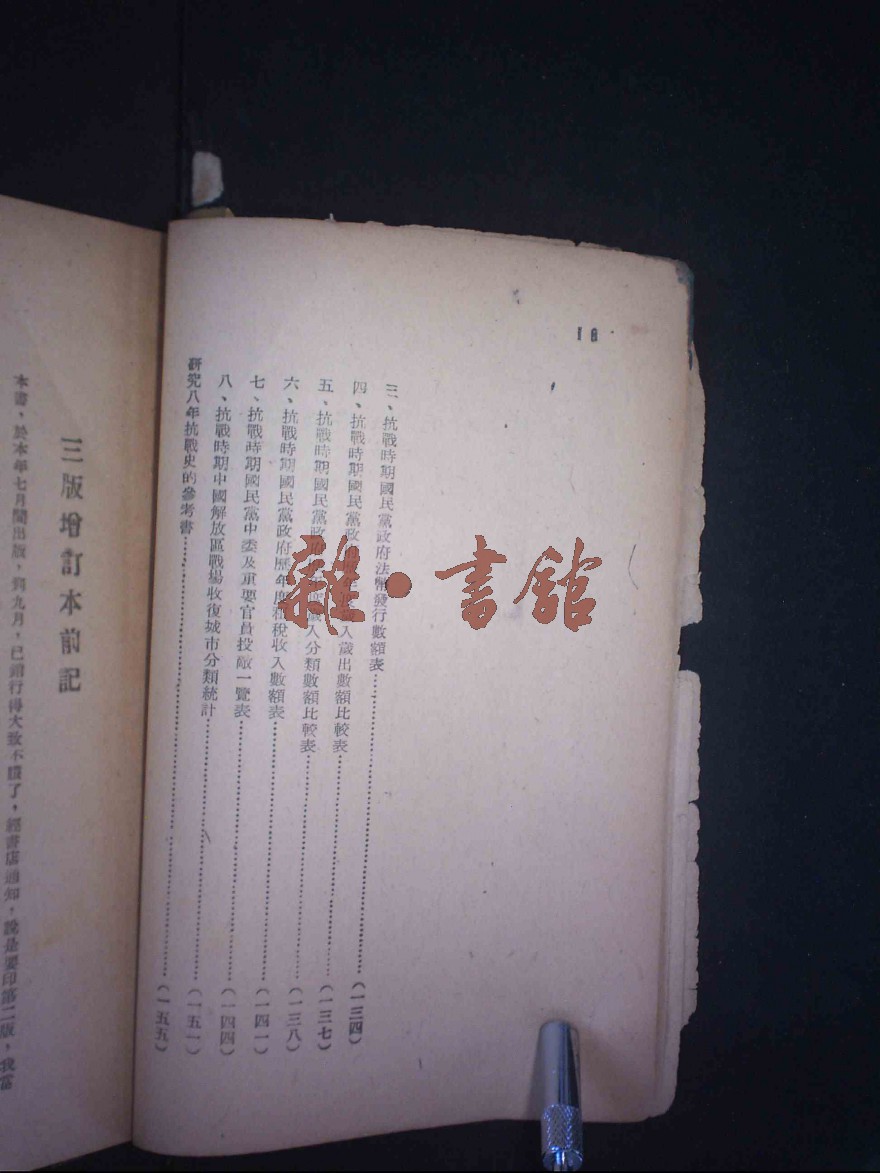 16
三、抗戰時期國民黨政府法幣發行數額表……(一三四)
四、抗戰時期國民黨政府歷年度歲入歲出數額比較表……(一三七)
五、抗戰時期國民黨政府歷年度歲入分類數額比較表……(一三八)
六、抗戰時期國民黨政府歷年度租稅收入數額表……(一四一)
七、抗戰時期國民黨中委及重要官員投敵一覽表……(一四四)
八、抗戰時期中國解放區戰場收復城市分類統計……(一五一)
研究八年抗戰史的參考書……(一五五)
三版增訂本前記
本書,於本年七月間出版,到九月,已銷行得大致不賸了,經書店通知,說是要印第二版,我當
雜·書館